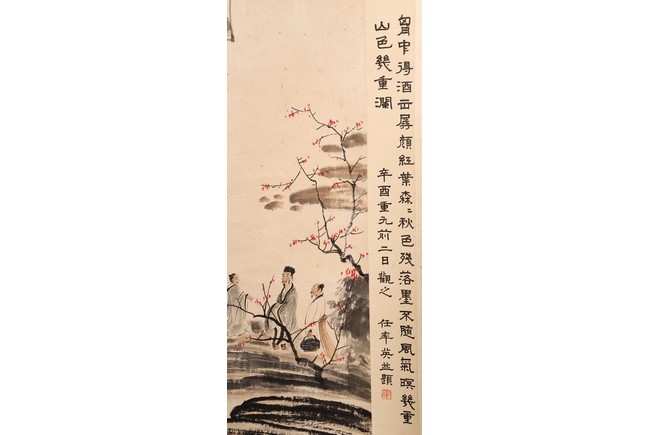 胷中得酒出孱顏紅葉森〻秋色殘落墨不隨風氣暝幾重
山色幾重瀾
辛酉重九前二日觀之 任率英並題